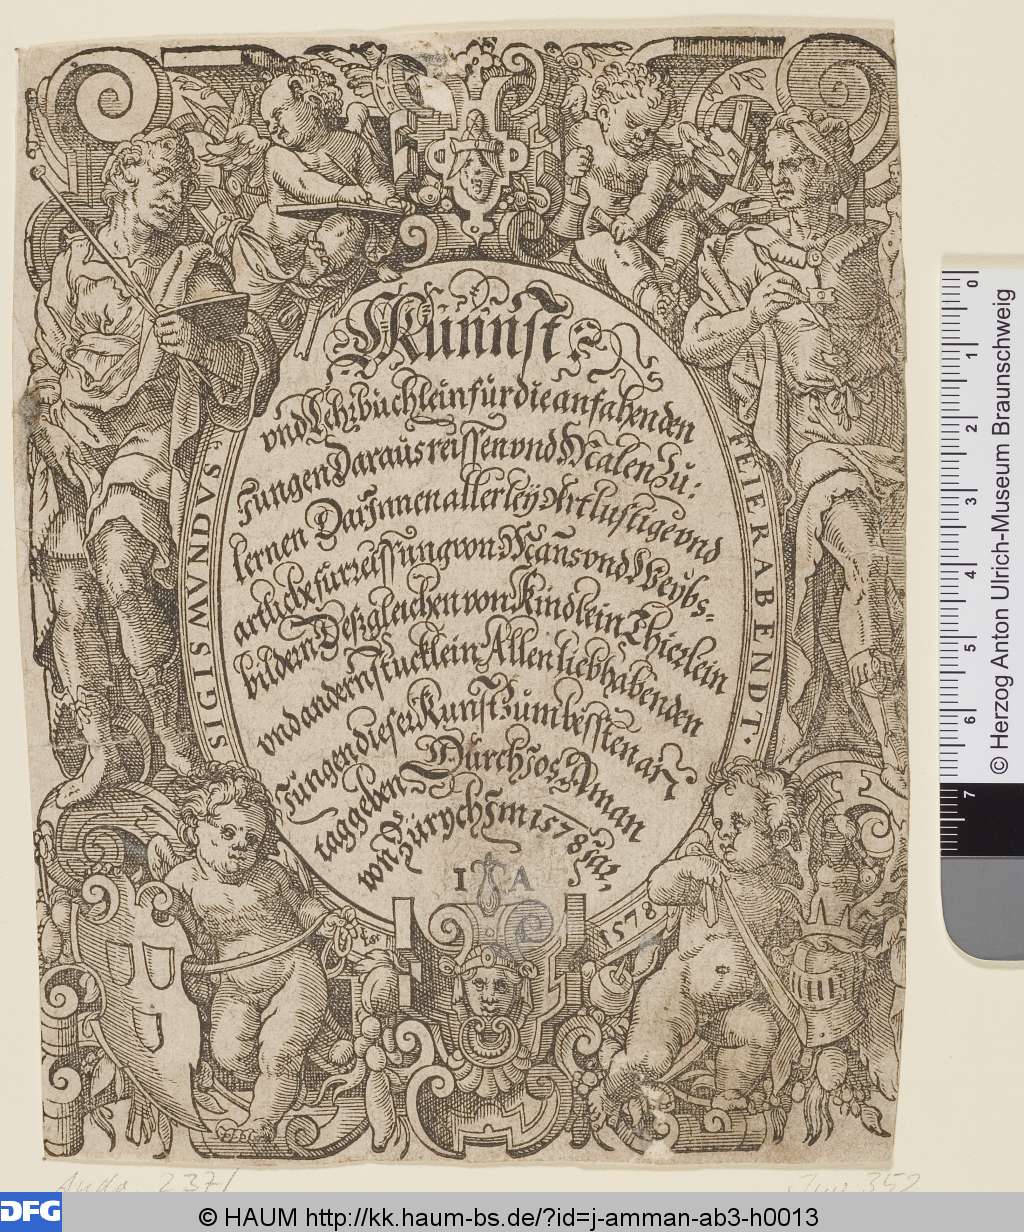 Kunnst
vnd Lehrbüchlein für die anfahenden
Jungen Daraus reissen vnd Malen Zu=
lernen Dar Jnnen allerley Art lustige vnd
artliche fürreissung von Mans vnd Weybs=
bildern Deßgleichen von Kindlein Thierlein
vnd andern stucklein Allen liebhabenden
Jungen dieser Kunst Zum bessten an
tag geben Durch Jos Aman
von Zürych Jm 1578 Jar
I A
SIGISMVNDVS
FEIERABENDT.
1578
Andr. 2371
352
0 1 2 3 4 5 6 7
© Herzog Anton Ulrich-Museum Braunschweig
DFG
© HAUM http://kk.haum-bs.de/?id=j-amman-ab3-h0013